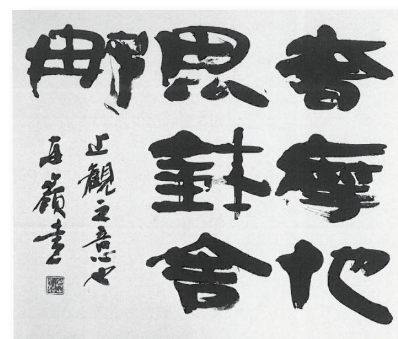 奢摩他
毘鉢舍
那
止観之意也
嶺書